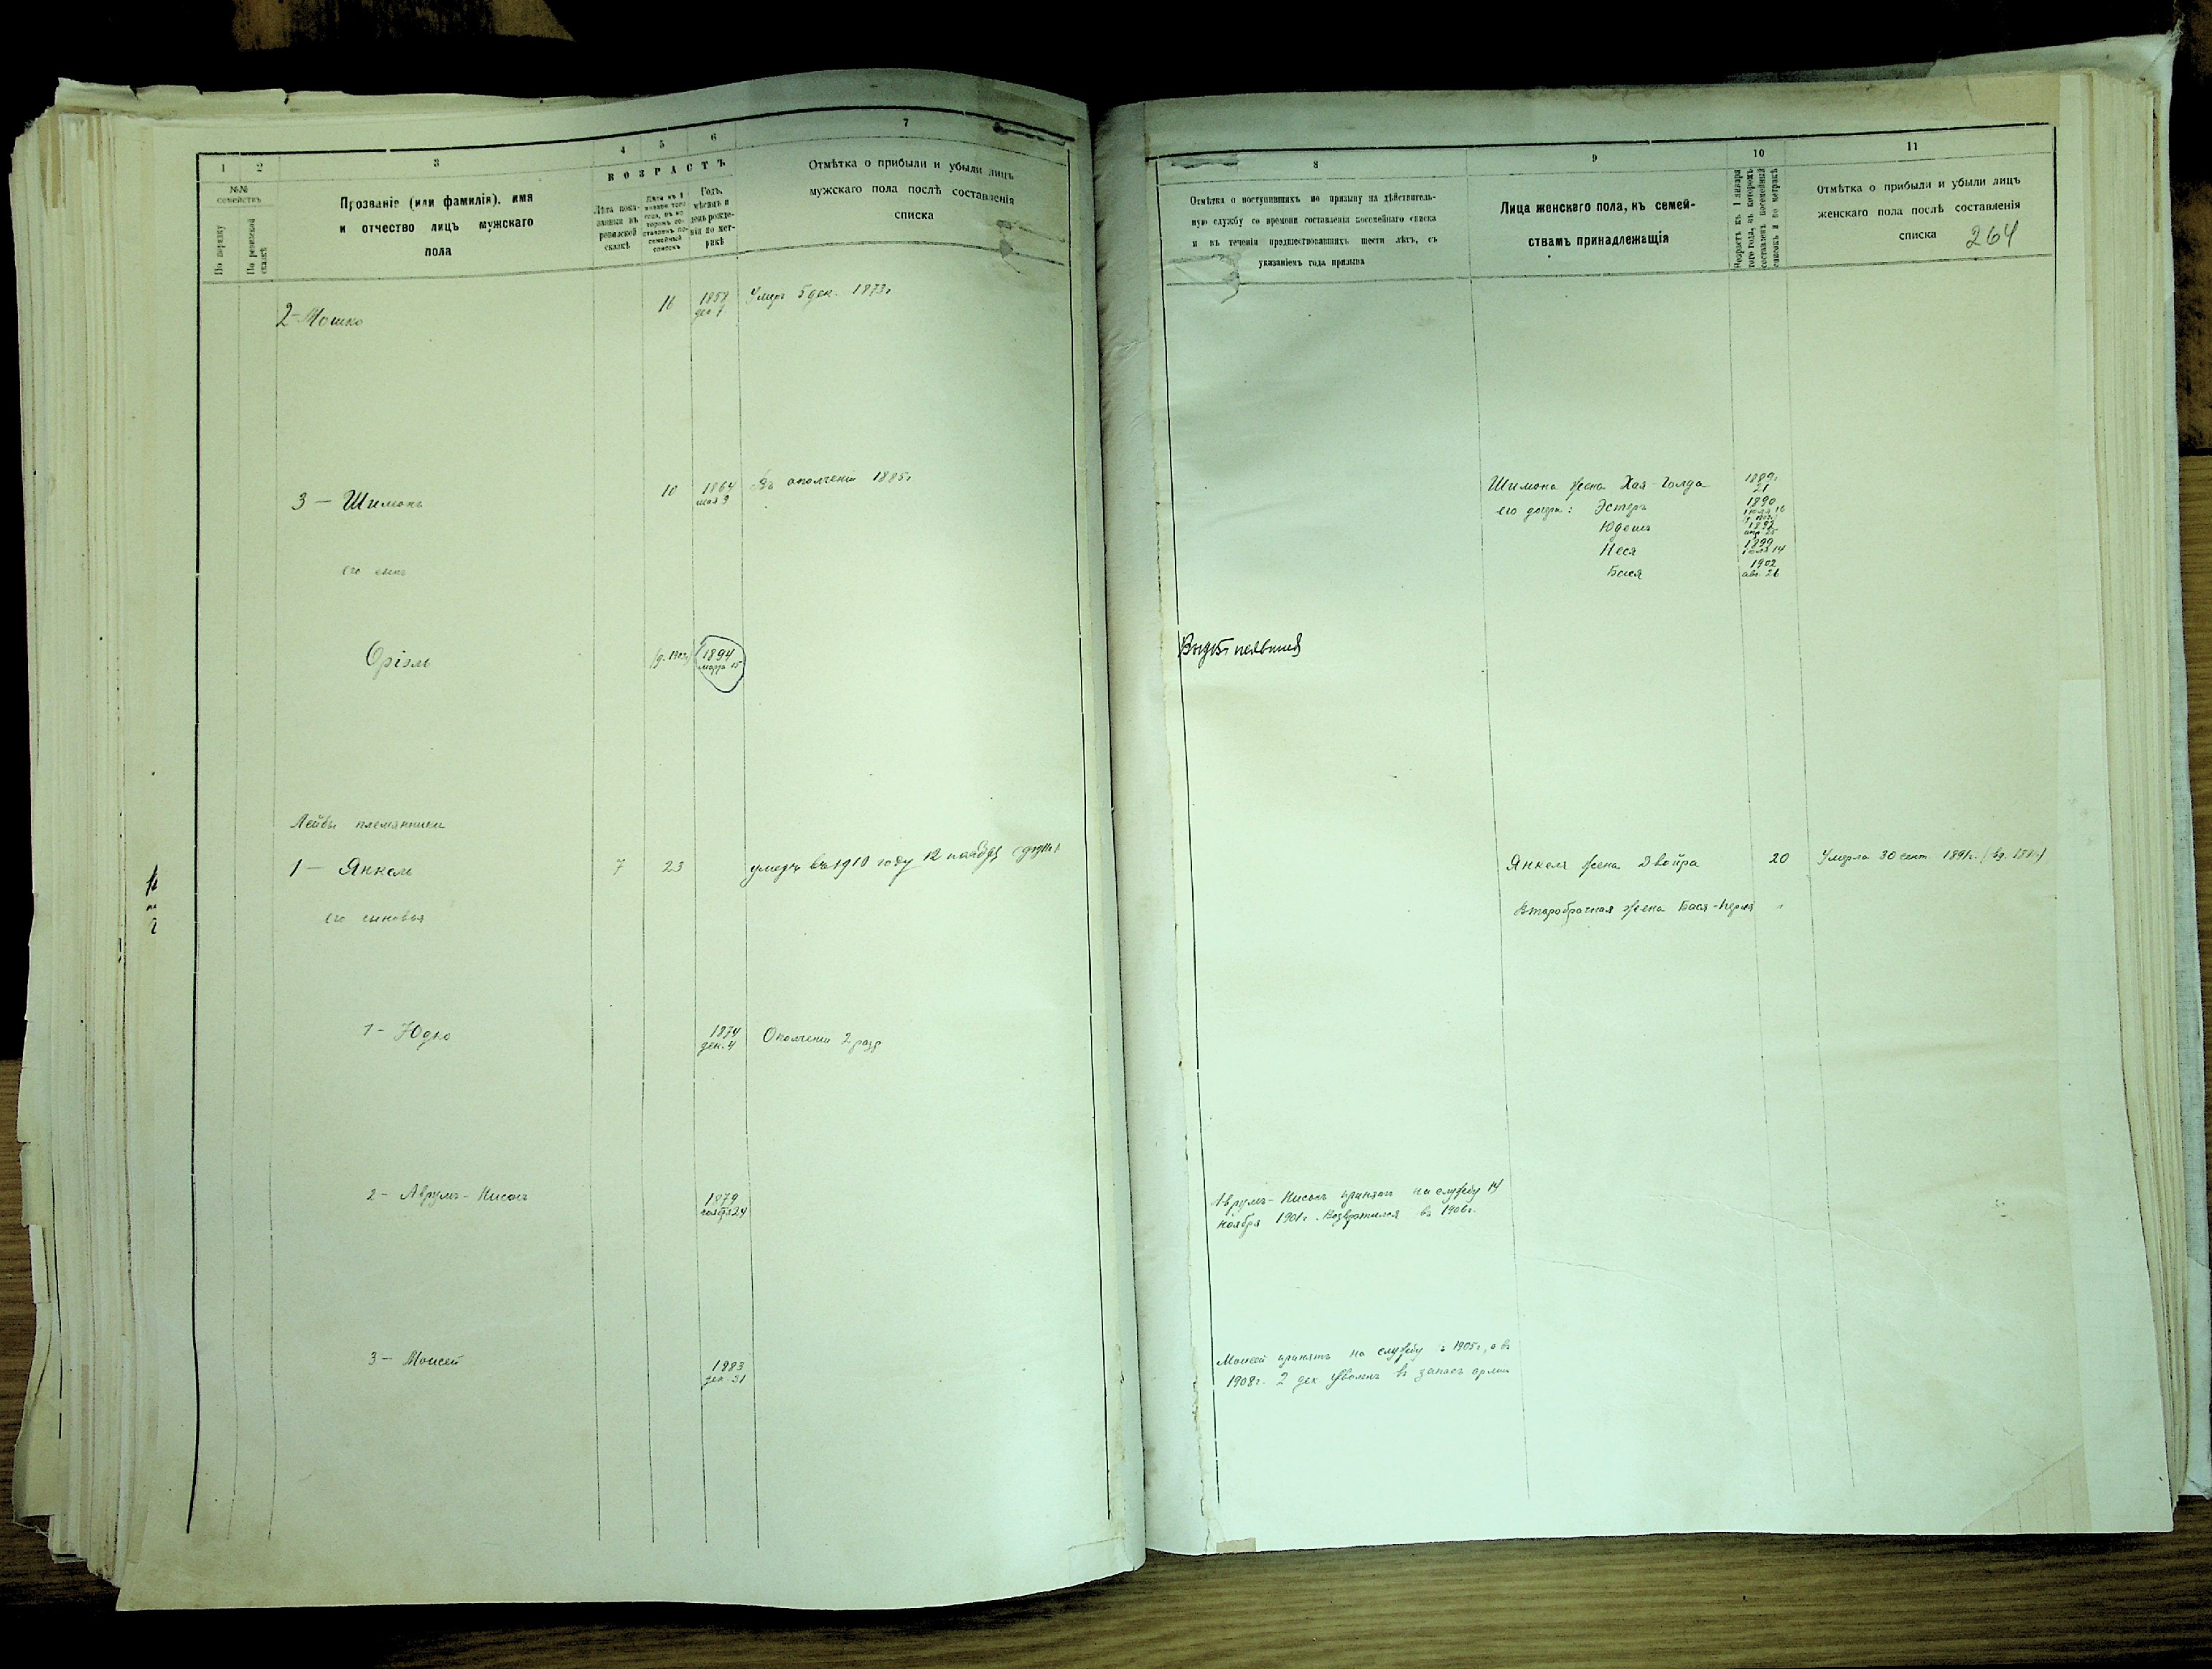 1 2 3 4 5 6 7
№№ семействъ
По порядку
По ревизской сказкѣ
Прозваніе (или фамилія), имя
и отчество лицъ мужскаго
пола
ВОЗРАСТЪ
Лѣта пока-
занныя въ
ревизской
сказкѣ
Лѣта къ 1
января того
года, въ ко-
торомъ со-
ставленъ по-
семейный
списокъ
Годъ,
мѣсяцъ и
день рожде-
нія по мет-
рикѣ
Отмѣтка о прибыли и убыли лицъ
мужскаго пола послѣ составленія
списка
2 - Мошко 16 1858 дек 7 Умеръ 5 дек. 1873г
3 — Шимонъ 10 1864 мая 9 Въ ополченіи 1885г
его сынъ
Оріэль 1894 марта 15
Лейбы племянники
1 — Янкель 7 23 умеръ въ 1910 году 12 ноября
его сыновья
1 - Юдко 1874 дек. 4 Ополченія 2 разр
2 - Аврумъ-Нисонъ 1879 ноября 24
3 - Моисей 1883 дек. 31
8 9 10 11
Отмѣтка о поступившихъ по призыву на дѣйствитель-
ную службу со времени составленія посемейнаго списка
и въ теченіи предшествовавшихъ шести лѣтъ, съ
указаніемъ года призыва
Лица женскаго пола, къ семей-
ствамъ принадлежащія
Возрастъ къ 1 января
того года, въ которомъ
составленъ посемейный
списокъ и по метрикѣ
Отмѣтка о прибыли и убыли лицъ
женскаго пола послѣ составленія
списка 264
Шимона жена Хая-Голда 1889г 21
его дочери: Эстеръ 1890 16
Юдешъ 1892 апр 25
Неся 1899 14
Бася 1902 авг. 26
Янкеля жена Двойра 20 Умерла 30 сент 1891г.
Второбрачная жена Бася-Перля
Аврумъ-Нисонъ принятъ на службу 14
ноября 1901г. Возвратился въ 1906г.
Моисей принятъ на службу в 1905г, а въ
1908г. 2 дек уволенъ въ запасъ арміи